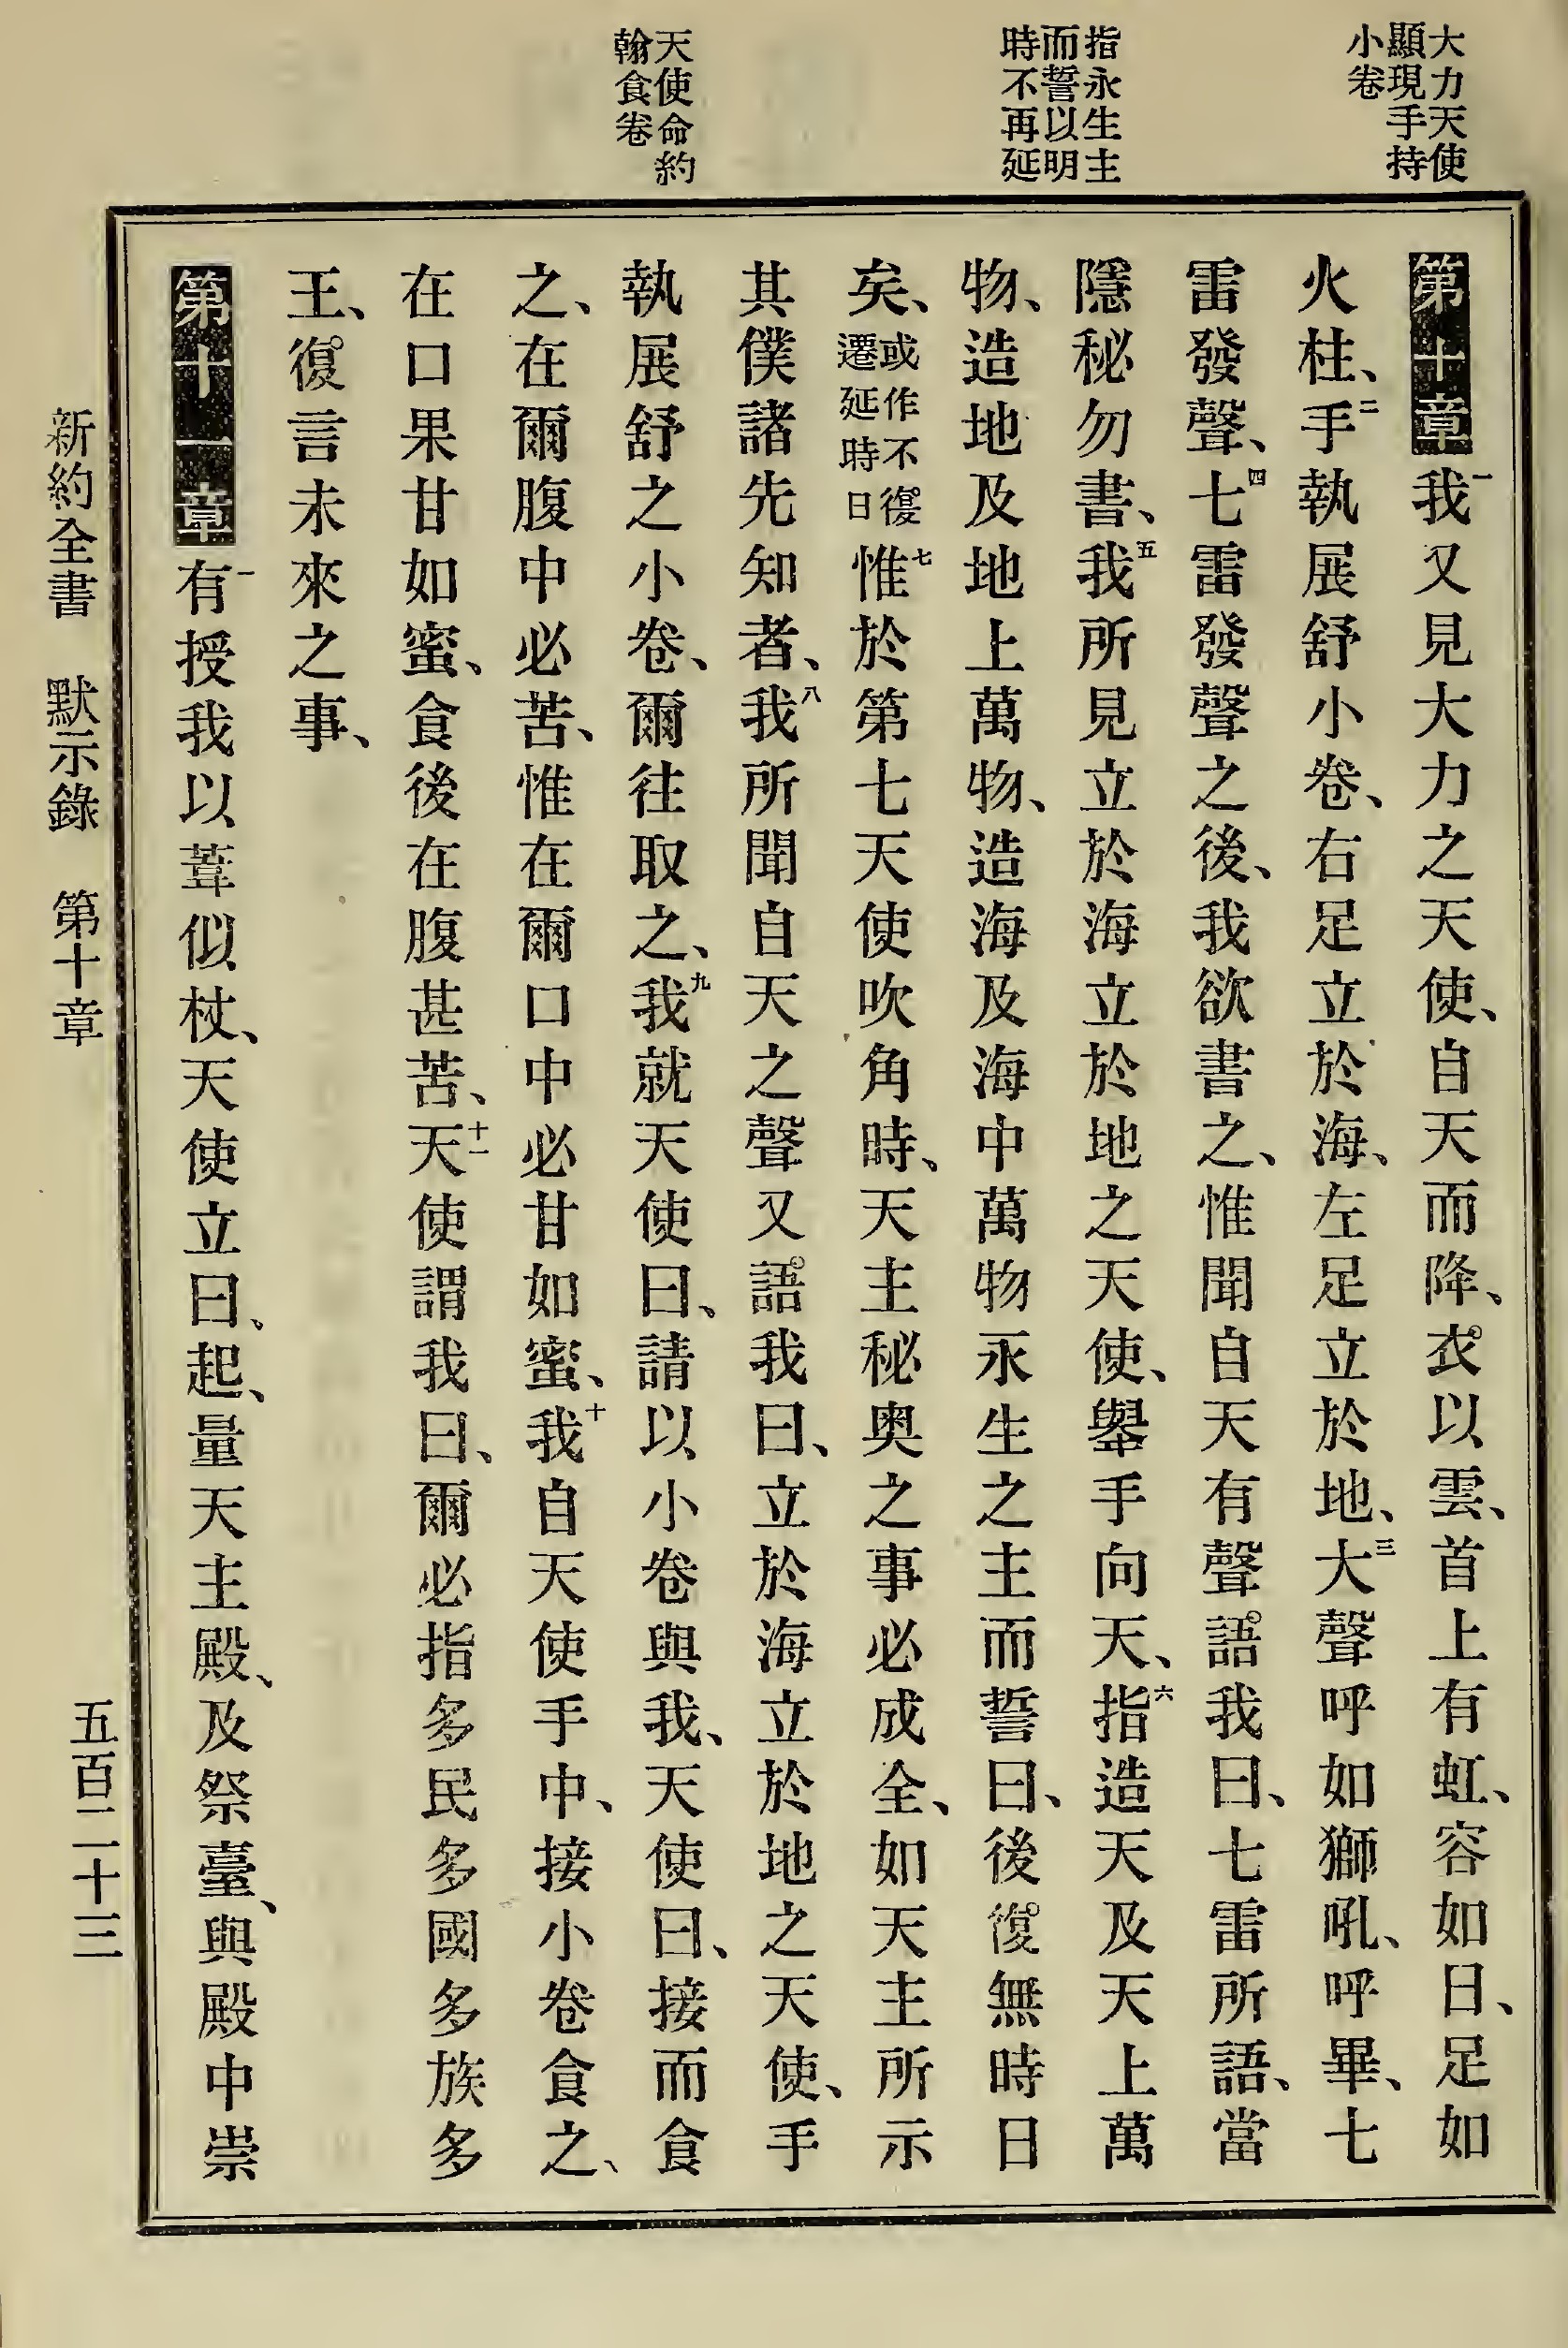 大力天使
顯現手持
小卷
指永生主
而誓以明
時不再延
天使命約
翰食卷
第十章一我又見大力之天使、自天而降、衣以雲、首上有虹、容如日、足如
火柱、二手執展舒小卷、右足立於海、左足立於地、三大聲呼如獅吼、呼畢、七
雷發聲、四七雷發聲之後、我欲書之、惟聞自天有聲語我曰、七雷所語、當
隱秘勿書、五我所見立於海立於地之天使、舉手向天、六指造天及天上萬
物、造地及地上萬物、造海及海中萬物永生之主而誓曰、後復無時日
矣、或作不復遷延時日七惟於第七天使吹角時、天主秘奧之事必成全、如天主所示
其僕諸先知者、八我所聞自天之聲又語我曰、立於海立於地之天使、手
執展舒之小卷、爾往取之、九我就天使曰、請以小卷與我、天使曰、接而食
之、在爾腹中必苦、惟在爾口中必甘如蜜、十我自天使手中、接小卷食之、
在口果甘如蜜、食後在腹甚苦、十一天使謂我曰、爾必指多民多國多族多
王、復言未來之事、
第十一章一有授我以葦似杖、天使立曰、起、量天主殿、及祭臺、與殿中崇
新約全書 默示錄 第十章 五百二十三